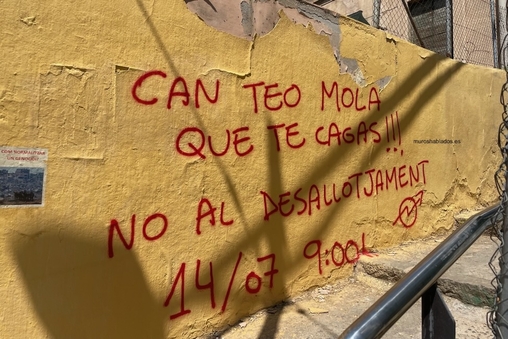 CAN TEO MOLA
QUE TE CAGAS!!!
muroshablados.es
NO AL DESALLOTJAMENT
14/07 9:00